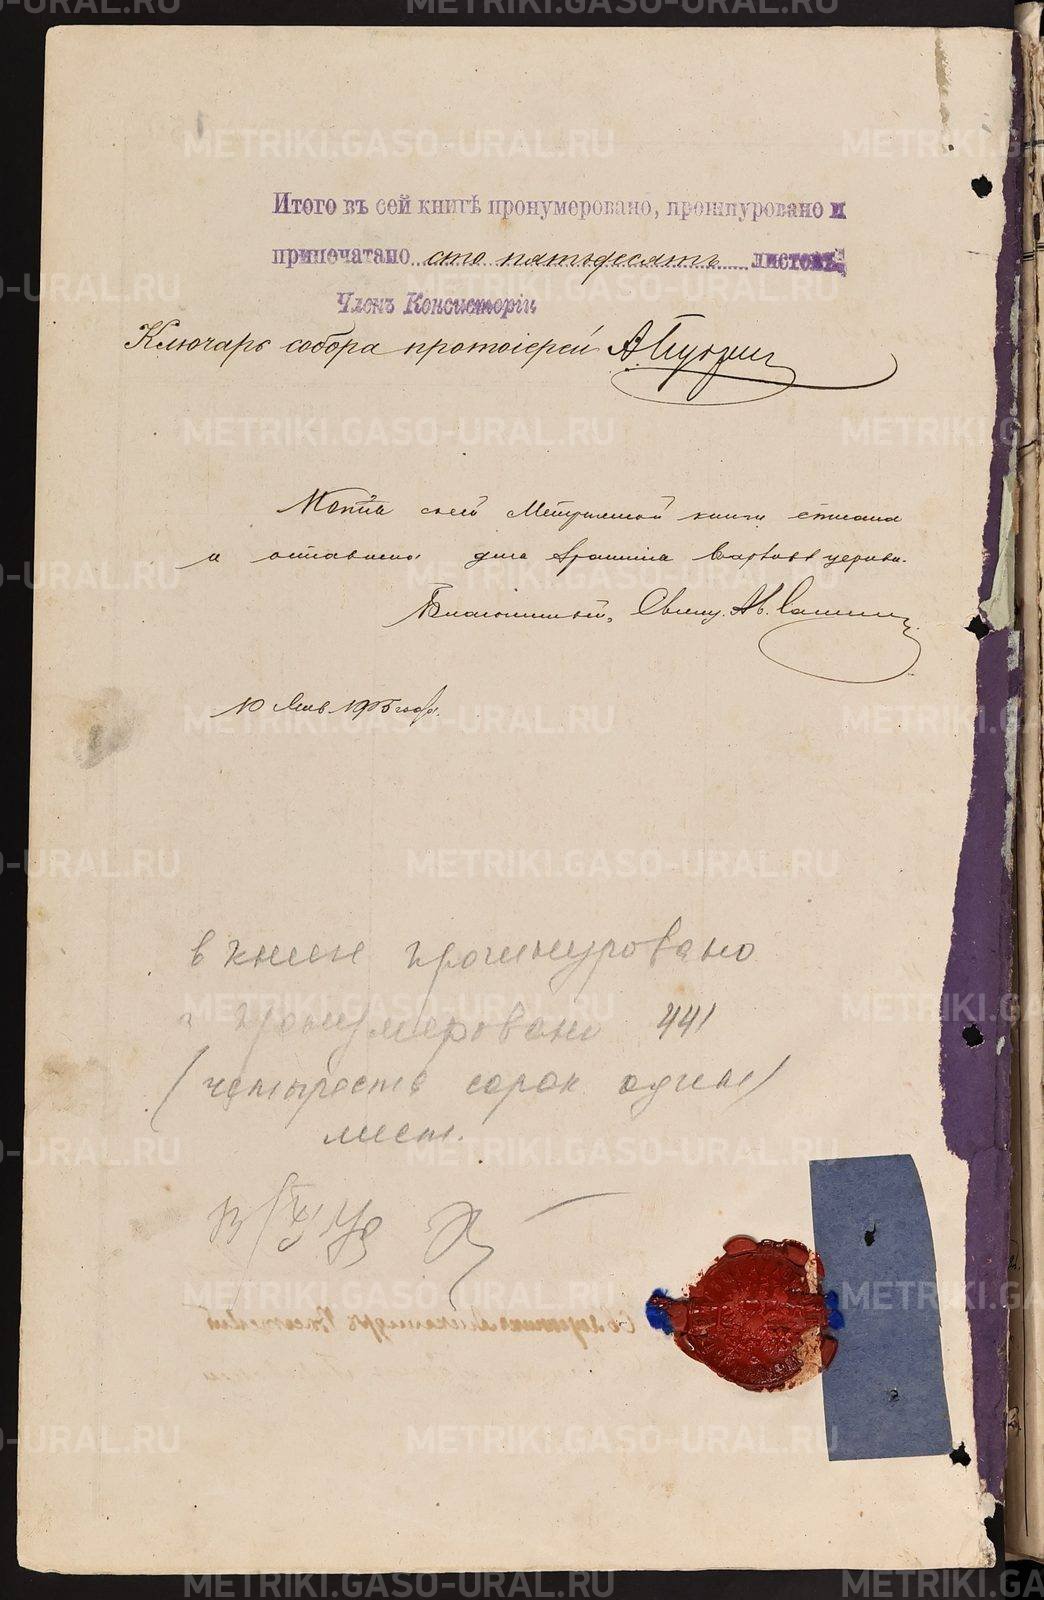 Итого въ сей книгѣ пронумеровано, прошнуровано и
припечатано сто пятьдесятъ листовъ
Членъ Консисторіи
Ключарь собора протоіерей А.
Копія сей Метрической книги списана
и оставлена для храненія церкви.
Благочинный, Свящ. Ал.
10 Янв 1915 года.
в книге прошнуровано
и пронумеровано 441
(четыреста сорок один)
лист.
METRIKI.GASO-URAL.RU